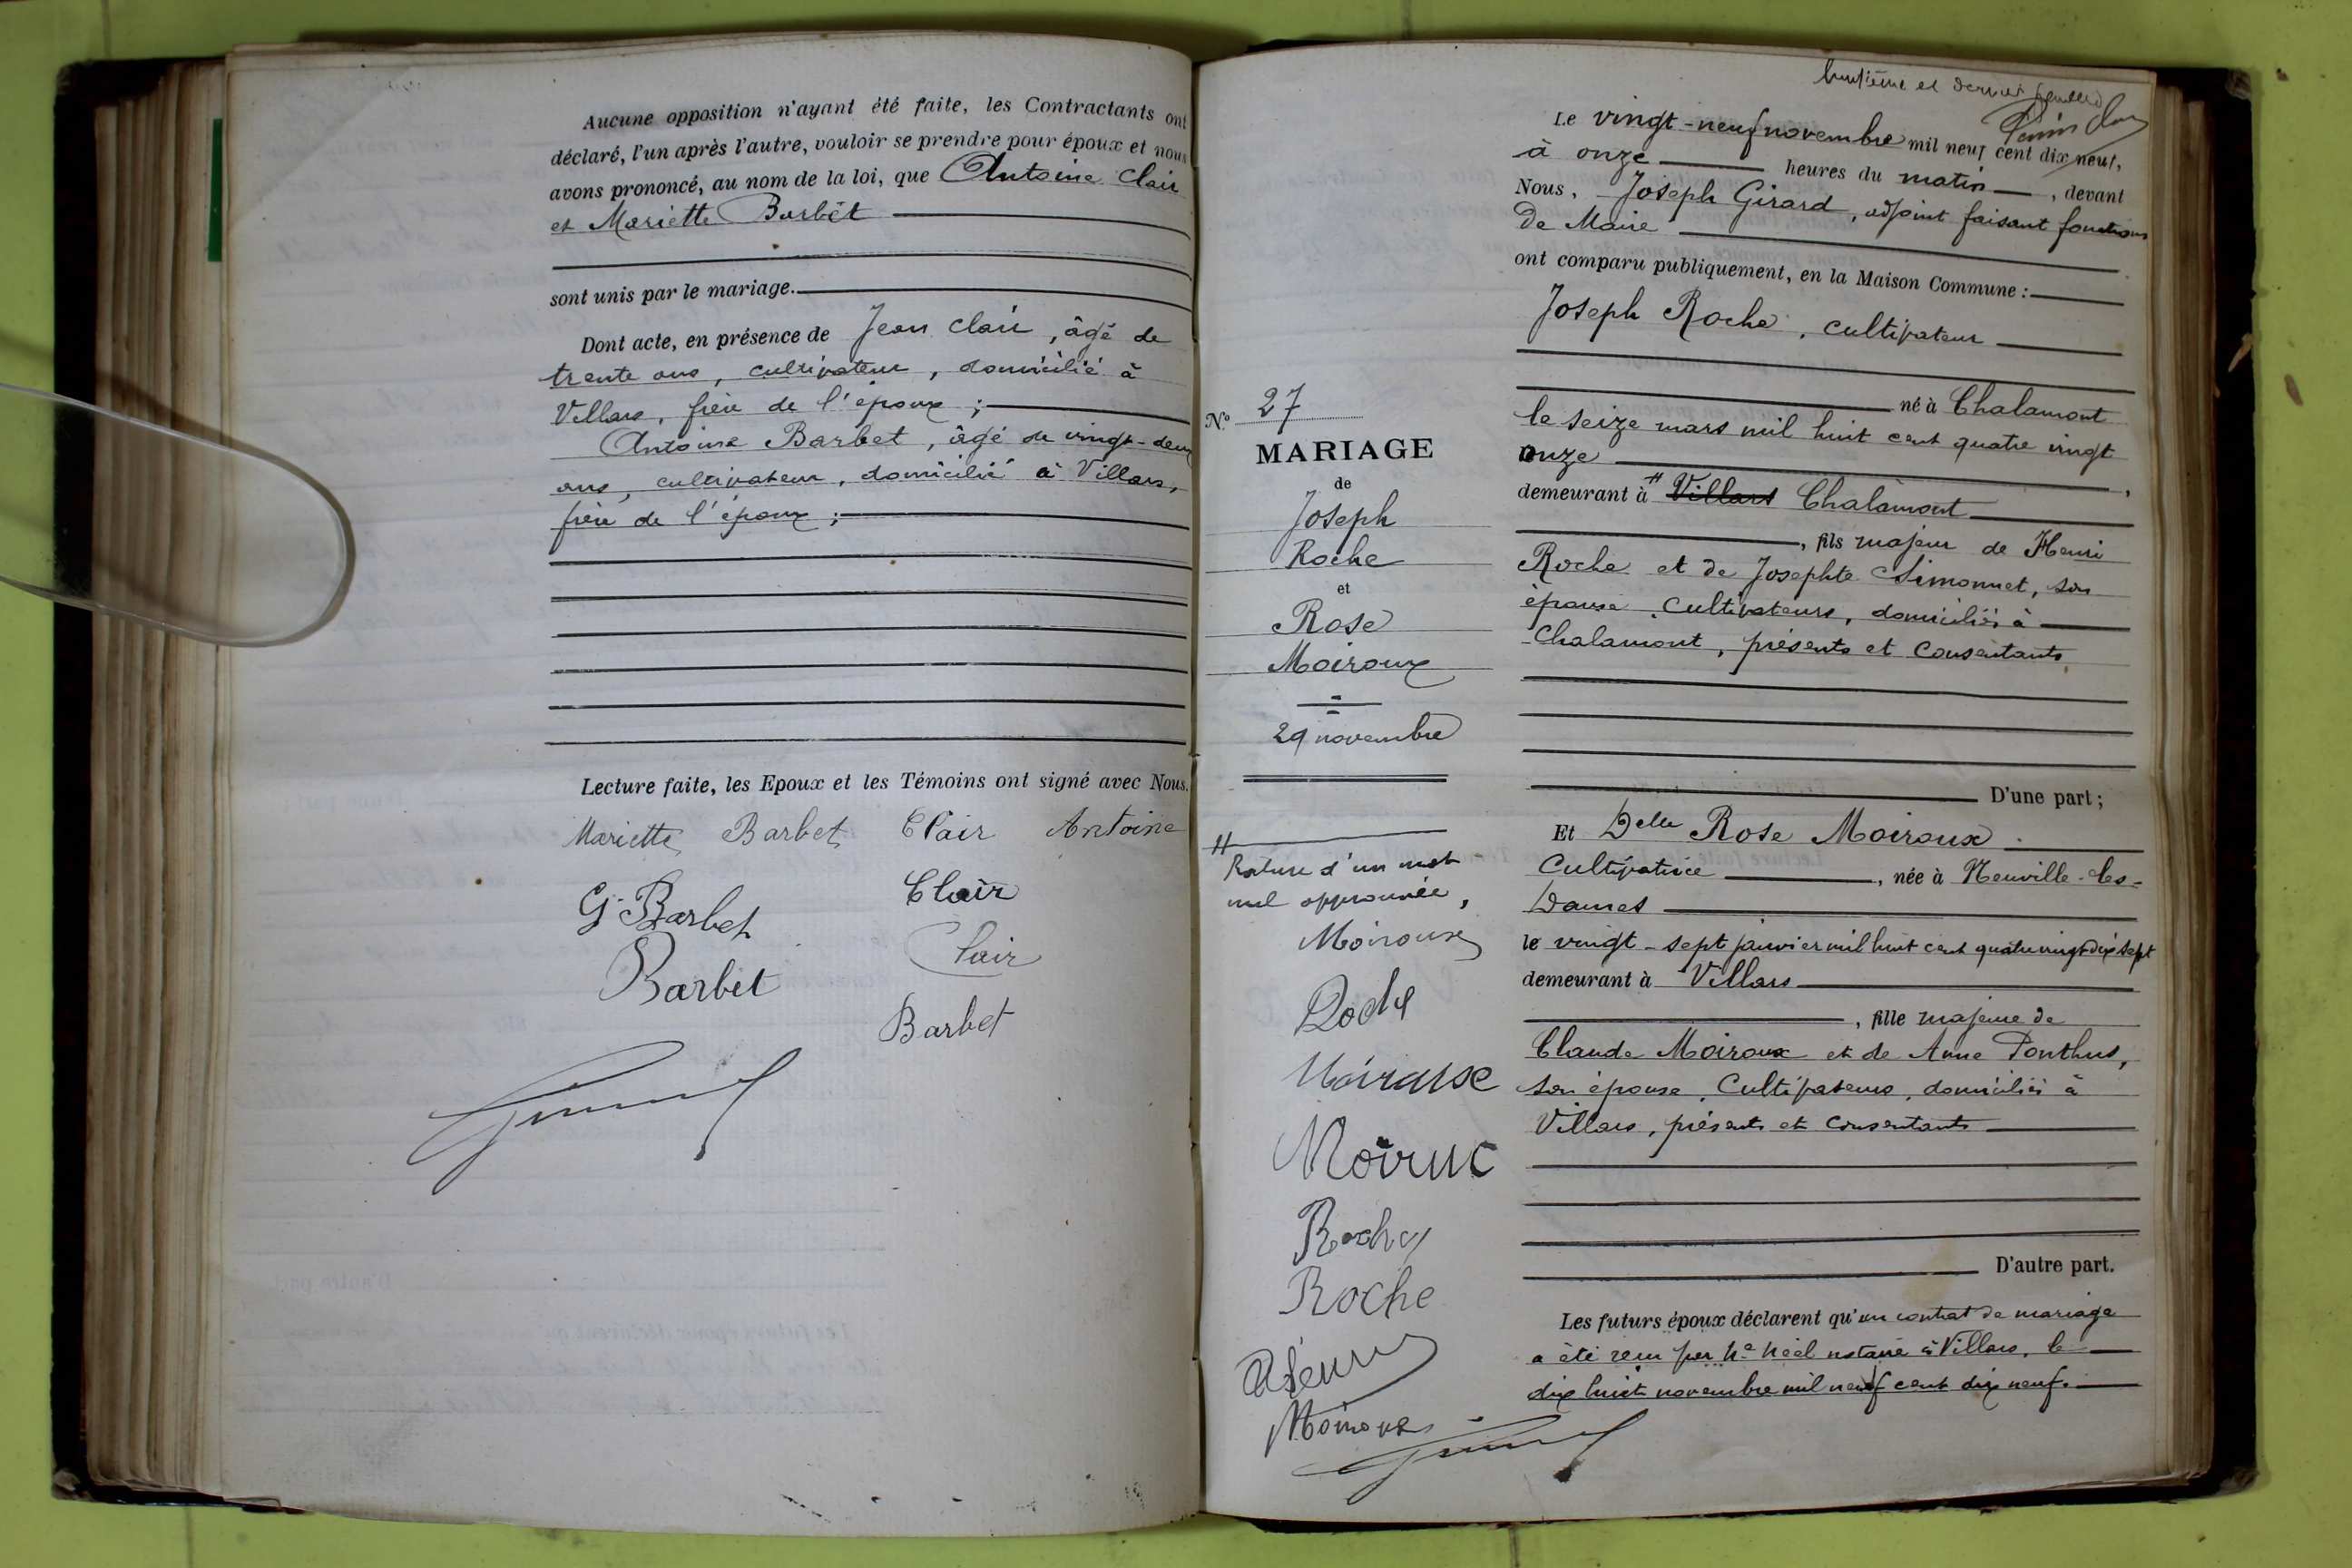 Aucune opposition n'ayant été faite, les Contractants ont
déclaré, l'un après l'autre, vouloir se prendre pour époux et nous
avons prononcé, au nom de la loi, que Antoine Clair
et Mariette Barbet
sont unis par le mariage.
Dont acte, en présence de Jean Clair, âgé de
trente ans, cultivateur, domicilié à
Villars, frère de l'époux ;
Antoine Barbet, âgé de vingt-deux
ans, cultivateur, domicilié à Villars,
frère de l'épouse ;
Lecture faite, les Epoux et les Témoins ont signé avec Nous.
Mariette Barbet Clair Antoine
G. Barbet Clair
Barbet Clair
Barbet
N.º 27
MARIAGE
de
Joseph
Roche
et
Rose
Moiroux
29 novembre
H
Rature d'un mot
nul approuvée,
Moiroux
Roche
Moiroux
Roche
Roche
Moiroux
huitième et dernier feuillet
Le vingt-neuf novembre mil neuf cent dix neuf,
à onze heures du matin, devant
Nous, Joseph Girard, adjoint faisant fonctions
de Maire
ont comparu publiquement, en la Maison Commune :
Joseph Roche, cultivateur
né à Chalamont
le seize mars mil huit cent quatre vingt
onze,
demeurant à H Villars Chalamont
, fils majeur de Henri
Roche et de Josephte Simonnet, son
épouse, Cultivateurs, domiciliés à
Chalamont, présents et consentants,
D'une part ;
Et Delle Rose Moiroux
Cultivatrice, née à Neuville-les-
Dames
le vingt-sept janvier mil huit cent quatre vingt dix sept
demeurant à Villars
, fille majeure de
Claude Moiroux et de Anne Ponthus,
son épouse, Cultivateurs, domiciliés à
Villars, présents et consentants
D'autre part.
Les futurs époux déclarent qu'un contrat de mariage
a été reçu par Me Noël notaire à Villars, le
dix huit novembre mil neuf cent dix neuf.